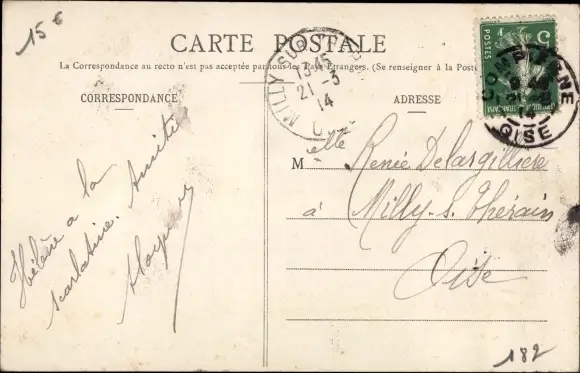 15 €
CARTE POSTALE
La Correspondance au recto n'est pas acceptée par tous les Pays Étrangers. (Se renseigner à la Poste
CORRESPONDANCE
ADRESSE
MILLY SUR
1345
21 - 3
14
5
POSTES
COMPIEGNE
14
OISE
Hélène a la
scarlatine. Amitiés
Melle Renée Delargillière
à Milly-s. Thérain
Oise
182